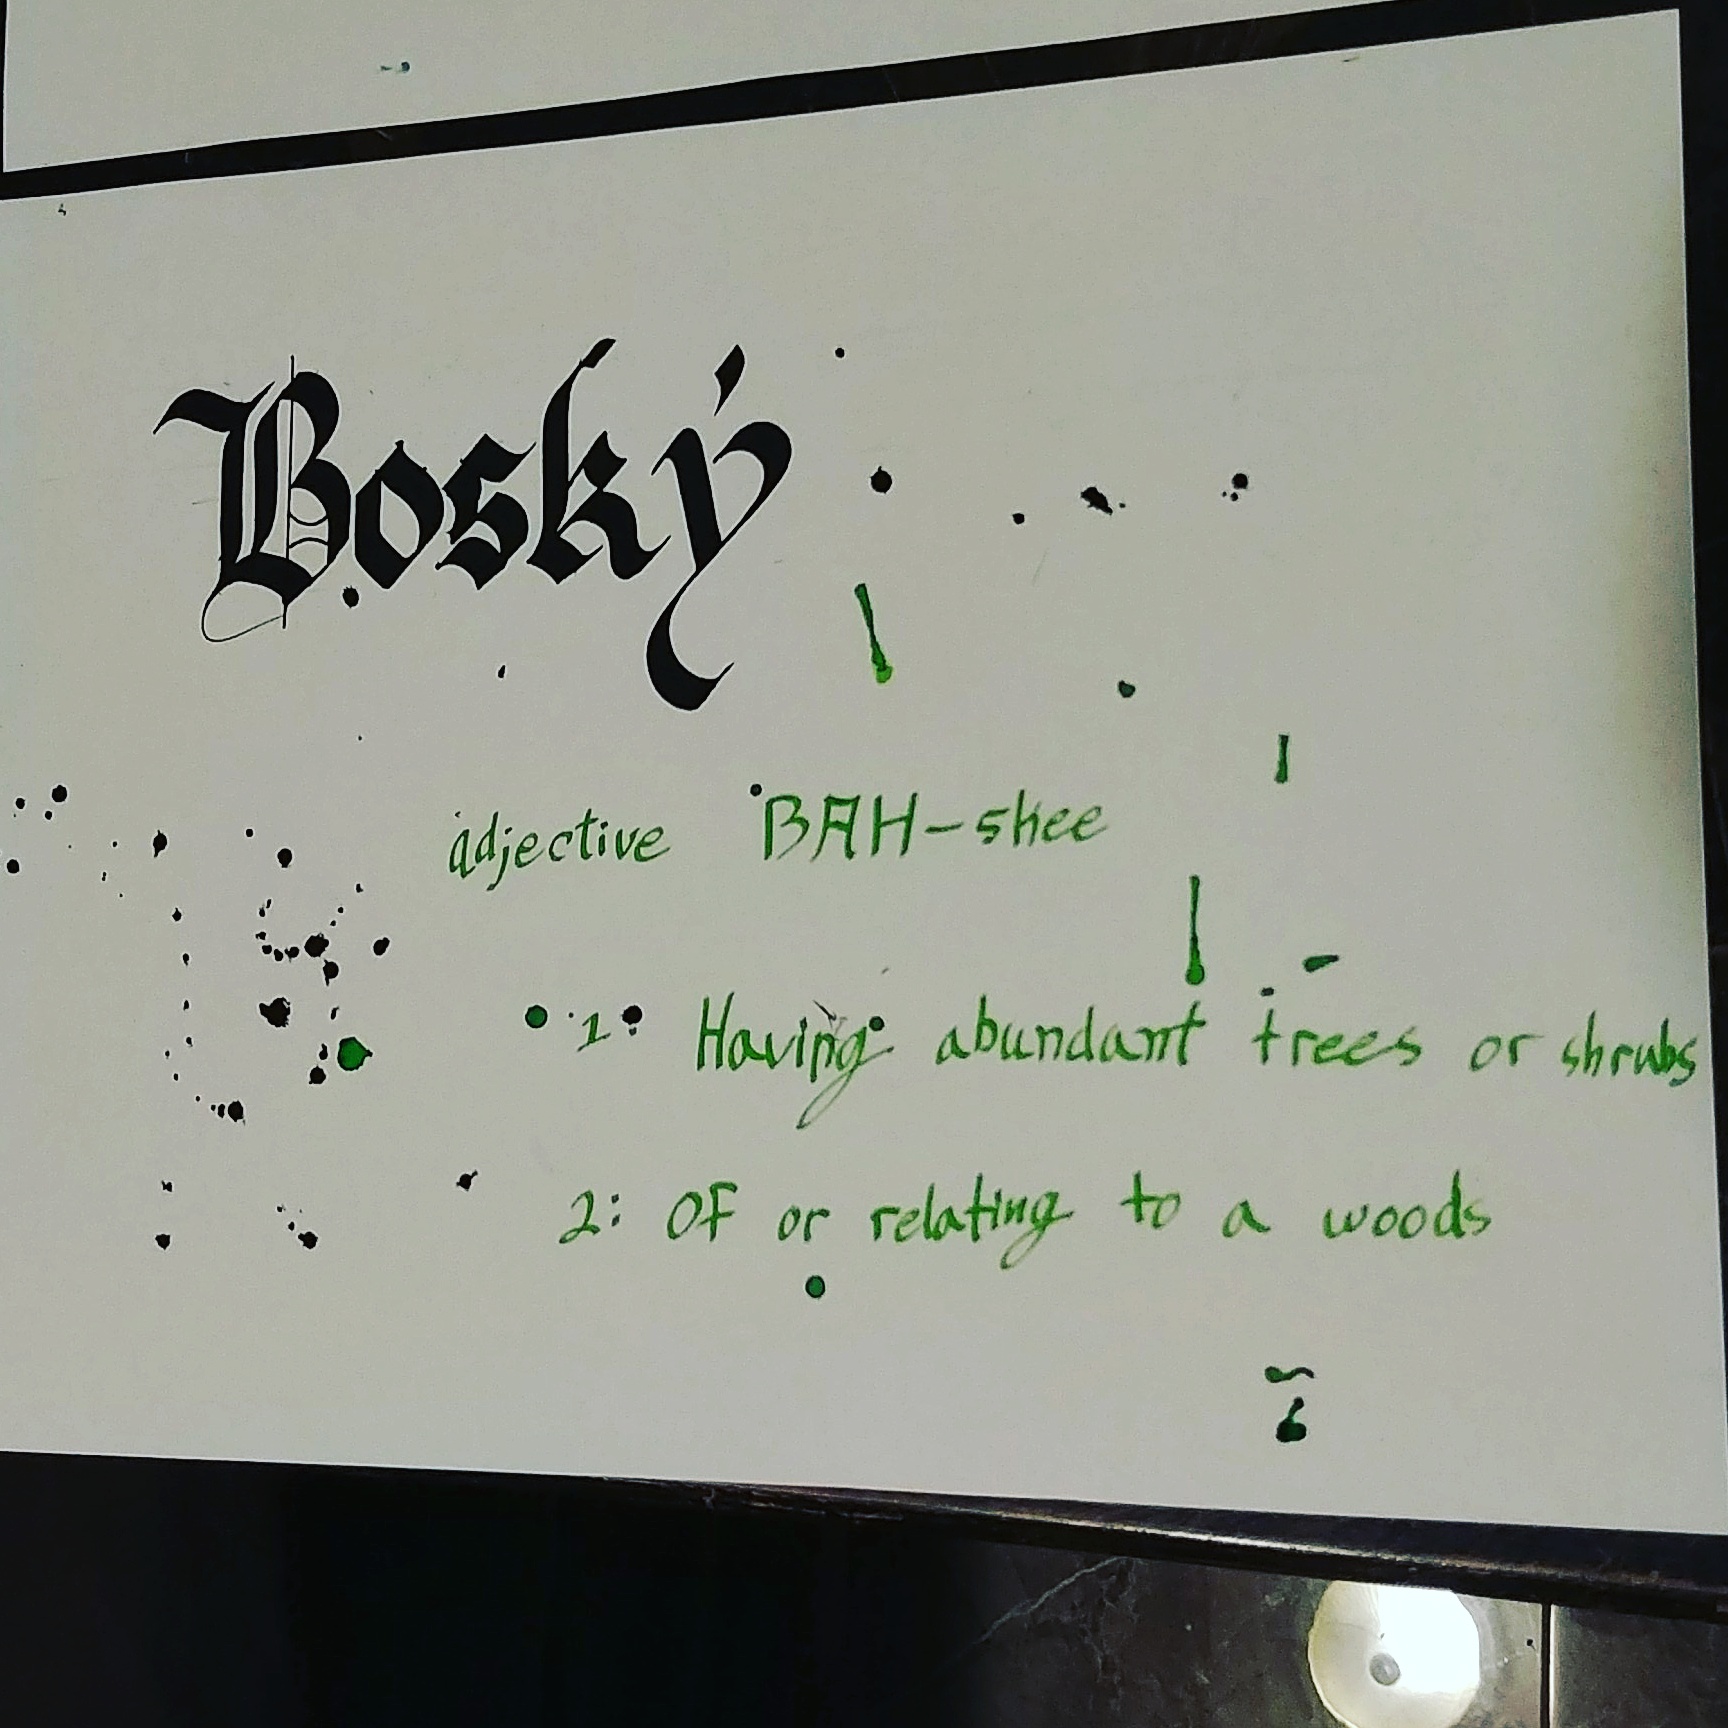 Bosky
adjective BAH-skee
1: Having abundant trees or shrubs
2: OF or relating to a woods